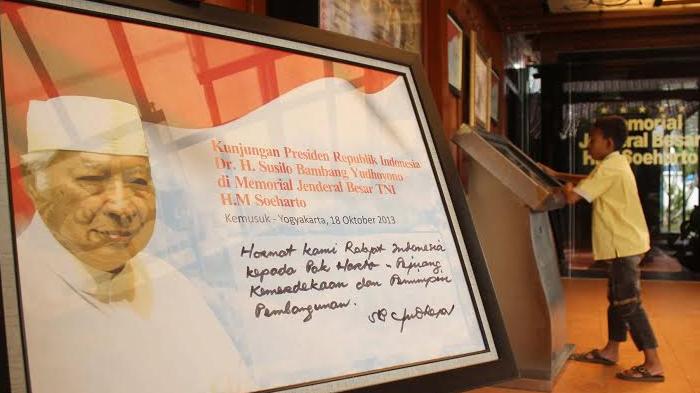 Kunjungan Presiden Republik Indonesia
Dr. H. Susilo Bambang Yudhoyono
di Memorial Jenderal Besar TNI
H.M Soeharto
Kemusuk - Yogyakarta, 18 Oktober 2013
Hormat kami Rakyat Indonesia
kepada Pak Harto - Pejuang
Kemerdekaan dan Pemimpin
Pembangunan.
Memorial
Jenderal Besar
H.M Soeharto